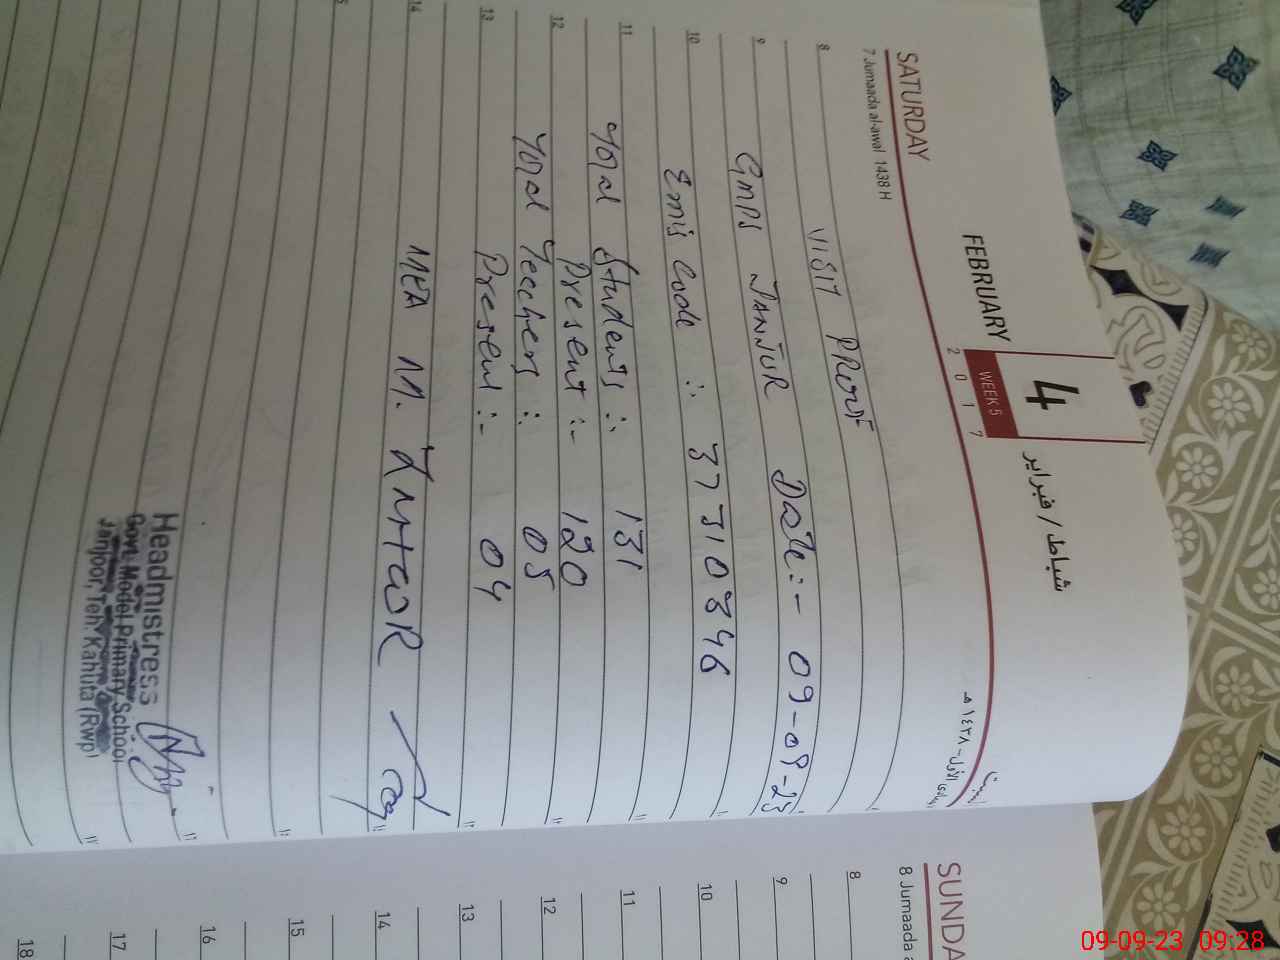 FEBRUARY 4 شباط / فبراير
WEEK 5
2 0 1 7
SATURDAY
7 Jumaada al-awal 1438 H
السبت
جمادى الأول - ١٤٣٨ هـ
8
VISIT PROOF
9
GMPS JANJUR Date:- 09-09-23
10
Emis Code : 37310346
11
Total Students :- 131
Present :- 120
12
Total Teechers : 05
13
Present :- 04
14
MEA M.
Headmistress
Govt. Model Primary School
Janjoor, Teh. Kahuta (Rwp)
SUNDA
8 Jumaada a
8
9
10
11
12
13
14
15
16
17
18
09-09-23 09:28